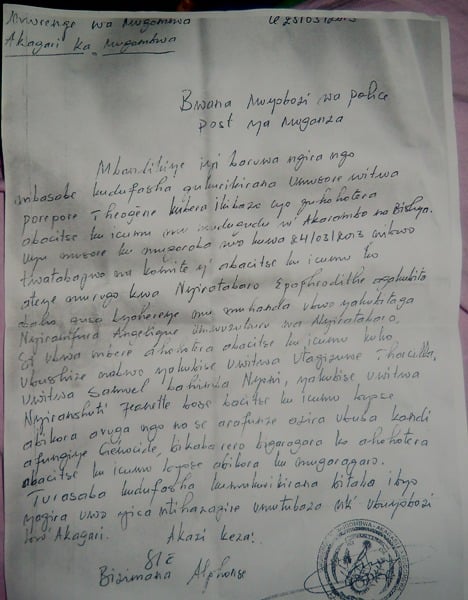 Murenge wa Mugombwa
Akagari ka Mugombwa
le 25/03/2013
Bwana Muyobozi wa police
post ya Muganza
Mbandikiye iyi baruwa ngira ngo
mbasabe kudufasha gukurikirana umusore witwa
porepore Theogène kubera ikibazo cyo guhohotera
abacitse ku icumu mu mudugudu w'Akaramba na Bishya.
Uyu musore ku mugoroba wo kuwa 24/03/2013 nibwo
twatabajwe na komite y'abacitse ku icumu ko
ateye mu rugo kwa Nyirataboro Epaphrodithe
baho gusa byaherereye mu muhanda ubwo yakubitaga
Nyiramfura Angelique umwuzukuru wa Nyirataboro,
Si ubwa mbere ahohotera abacitse ku icumu kuko
ubushize nabwo yakubise uwitwa Utagizunze Thacilla,
uwitwa Samuel yakubise uwitwa
Nyiranshuti Jeanette bose bacitse ku icumu byose
abikora avuga ngo na se arafunze azira ubusa kandi
afungiye Genocide, bikaba rero bigaragara ko ahohotera
abacitse ku icumu byose abikora ku mugaragaro.
Turasaba kudufasha kumukurikirana bitaba ibyo
yagira uwo yica ntihazagire umutubaza nk' Ubuyobozi
bw'Akagari.
Akazi keza!
S/E
Bizimana Alphonse